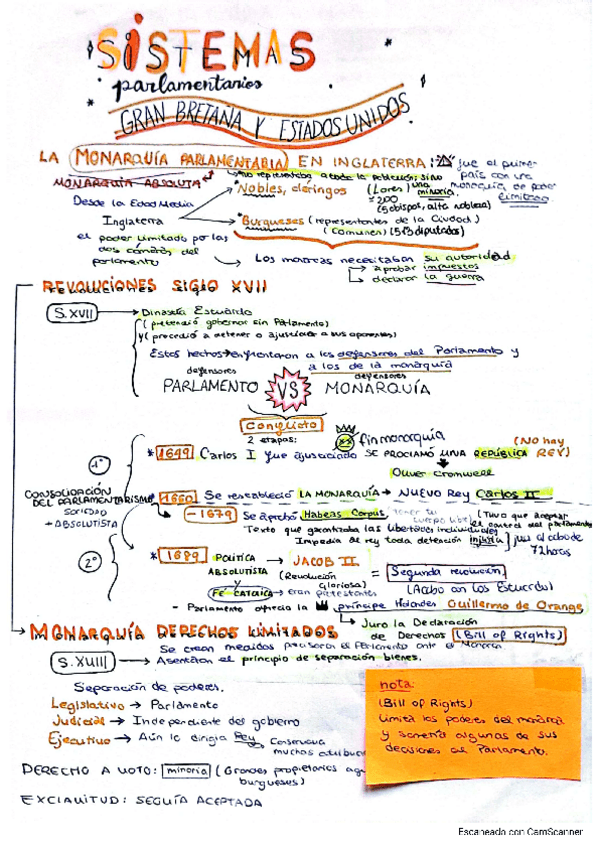 SISTEMAS
parlamentarios
GRAN BRETAÑA Y ESTADOS UNIDOS
LA MONARQUÍA PARLAMENTARIA EN INGLATERRA: fue el primer
país con una
monarquía de poder
limitado.
MONARQUÍA ABSOLUTA
no representaba a toda la población; sino
una minoría.
Desde la Edad Media
Inglaterra
el poder limitado por las
dos cámaras del
parlamento
Nobles, clérigos (Lores) ≈200
(5 obispos, alta nobleza)
Burgueses (representantes de la Ciudad)
(Comunes) (513 diputados)
Los monarcas necesitaban su autoridad
aprobar impuestos
declarar la guerra
REVOLUCIONES SIGLO XVII
S.XVII → Dinastía Estuardo
(pretendió gobernar sin Parlamento)
y (procedió a detener o ajusticiar a sus oponentes)
Estos hechos → enfrentaron a los defensores del Parlamento y
a los de la monarquía
defensores defensores
PARLAMENTO VS MONARQUÍA
Conflicto
2 etapas:
fin monarquía
(No hay
REY)
1º
* 1649 Carlos I fue ajusticiado SE PROCLAMÓ UNA REPÚBLICA
Oliver Cromwell
CONSOLIDACIÓN
DEL PARLAMENTARISMO
SOCIEDAD
+ ABSOLUTISTA
* 1660 Se restableció LA MONARQUÍA → NUEVO REY Carlos II
- 1679 Se aprobó Habeas Corpus
(Tuvo que aceptar
el control del parlamento)
Texto que garantizaba las libertades individuales
Impedía al rey toda detención injusta
72 horas
2º
* 1689 POLÍTICA
ABSOLUTISTA
Y
FE CATÓLICA → eran protestantes
→ JACOB II
(Revolución
Gloriosa)
= Segunda revolución
(Acabo con los Estuardo)
- Parlamento ofrecía la príncipe Holandés Guillermo de Orange
Juro la Declaración
de Derechos (Bill of Rights)
MONARQUÍA DERECHOS LIMITADOS
Se crean medidas
el Parlamento ante el Monarca
S.XVIII → Asentaron el principio de separación bienes.
Separación de poderes.
Legislativo → Parlamento
Judicial → Independiente del gobierno
Ejecutivo → Aún lo dirigía Rey
Conservaba
muchas
DERECHO A VOTO: minoría (Grandes propietarios
burgueses)
EXCLAVITUD: SEGUÍA ACEPTADA
nota:
(Bill of Rights)
Limita los poderes del monarca
y sometía algunas de sus
decisiones al Parlamento.
Escaneado con CamScanner